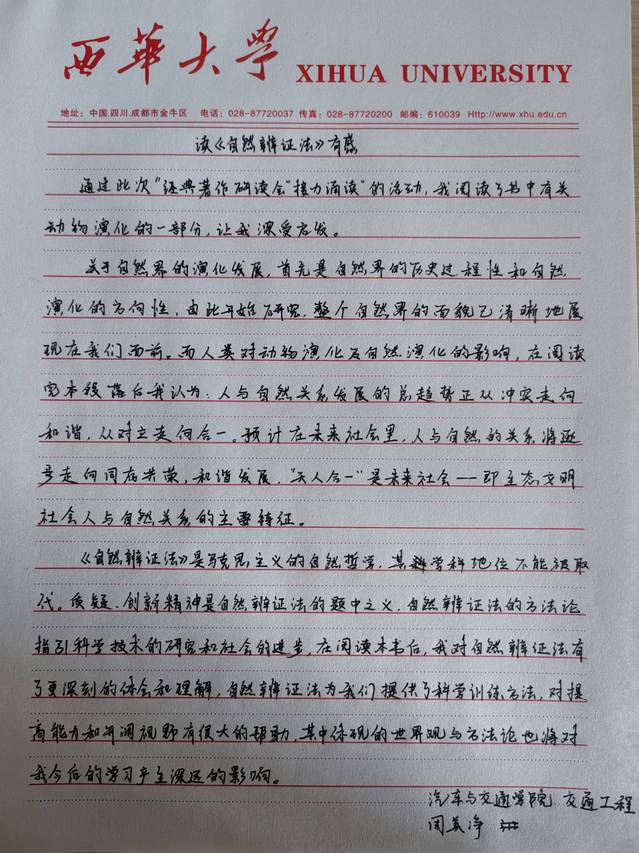 西華大学 XIHUA UNIVERSITY
地址：中国.四川.成都市金牛区 电话：028-87720037 传真：028-87720200 邮编：610039 Http://www.xhu.edu.cn
读《自然辨证法》有感
通过此次"经典著作研读会"接力诵读"的活动，我阅读了书中有关
动物演化的一部分，让我深受启发。
关于自然界的演化发展，首先是自然界的历史过程性和自然
演化的方向性，由此开始研究，整个自然界的面貌已清晰地展
现在我们面前。而人类对动物演化及自然演化的影响，在阅读
完本段落后我认为：人与自然关系发展的总趋势正从冲突走向
和谐，从对立走向合一。预计在未来社会里，人与自然的关系将逐
步走向同存共荣，和谐发展，"天人合一"是未来社会——即生态文明
社会人与自然关系的主要特征。
《自然辨证法》是马克思主义的自然哲学，其科学科地位不能被取
代。质疑、创新精神是自然辨证法的题中之义，自然辨证法的方法论
指引科学技术的研究和社会的进步，在阅读本书后，我对自然辨证法有
了更深刻的体会和理解，自然辨证法为我们提供了科学训练方法，对提
高能力和开阔视野有很大的帮助，其中体现的世界观与方法论也将对
我今后的学习产生深远的影响。
汽车与交通学院 交通工程
周美净